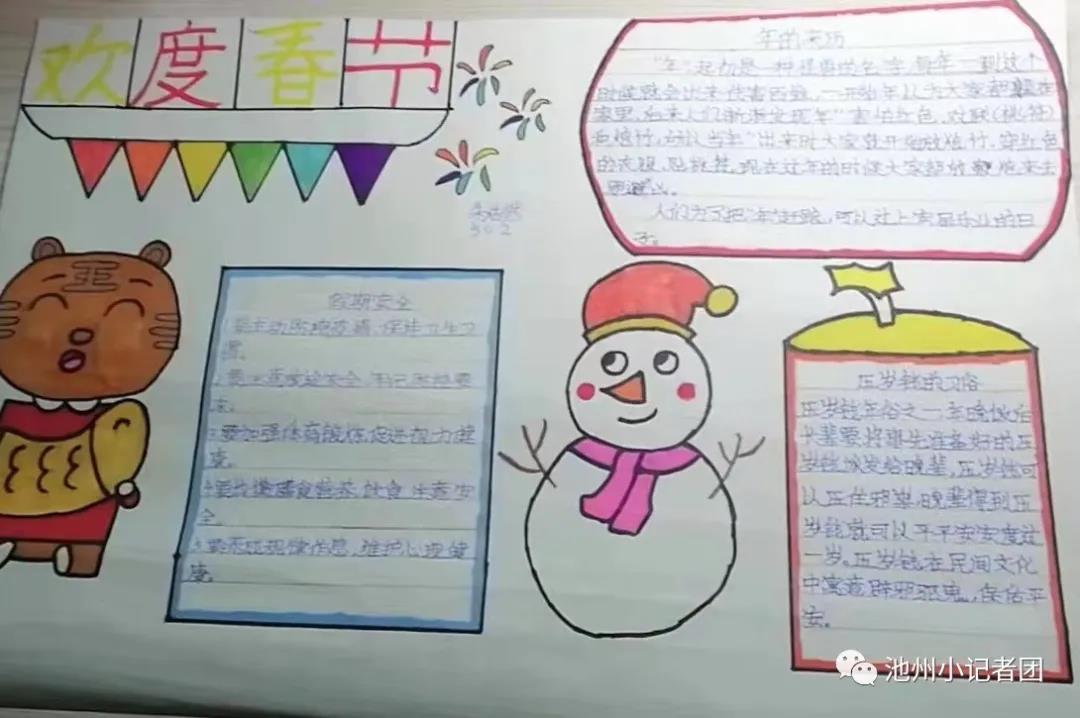 欢度春节
年的来历
"年"起初是一种怪兽的名字,每年一到这个
时候就会出来伤害百姓,一开始年以为大家都躲在
家里,后来人们渐渐发现年"害怕红色,对联(桃符)
和炮竹,所以当年"出来时大家就开始放炮竹,穿红色
的衣服,贴桃符,现在过年的时候大家都放鞭炮来去
人们为了把"年"赶跑,可以过上安居乐业的日
子。
502
假期安全
1.要主动防控疫情,保持卫生习
惯。
2.要注重度安全,牢记
3.要加强体育锻炼,促进视力健
康。
4.要饮食营养,饮食注意安
全。
5.要实现规律作息,维护心理健
康。
压岁钱的习俗
压岁钱年俗之一,年晚饭后
长辈要将事先准备好的压
岁钱派发给晚辈,压岁钱可
以压住邪祟,晚辈得到压
岁钱就可以平平安安度过
一岁。压岁钱在民间文化
中寓意辟邪驱鬼,保佑平
安。
池州小记者团